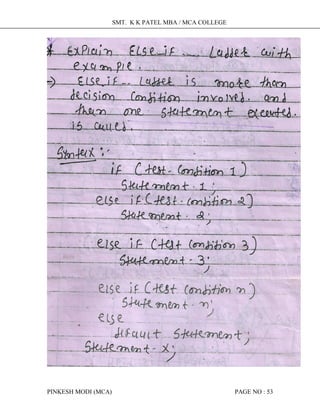 SMT. K K PATEL MBA / MCA COLLEGE
* Explain Else if ... Ladder with
example.
→ Else if... Ladder is more than
decision Condition involved. and
than one statement executed.
is called.
Syntax :-
if (test-condition 1)
Statement-1;
else if (test-condition 2)
Statement-2;
else if (test condition 3)
Statement-3;
else if (test condition n)
Statement-n;
else
default statement;
Statement-x;
PINKESH MODI (MCA) PAGE NO : 53